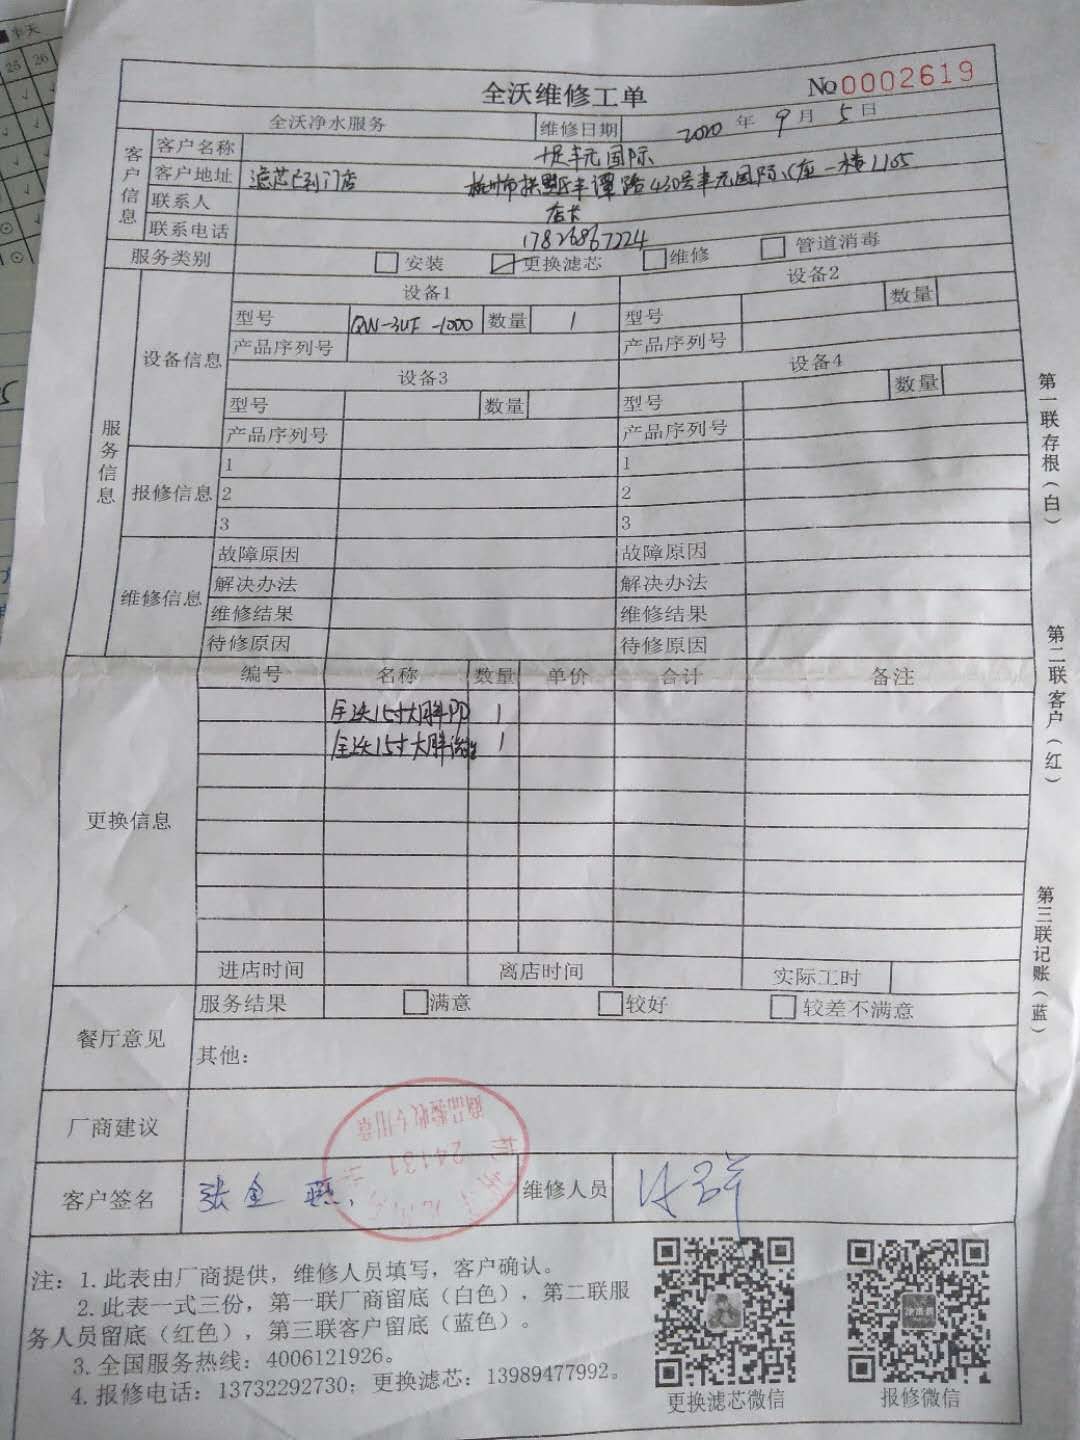 全沃维修工单
No 0002619
全沃净水服务 维修日期 2020 年 9 月 5 日
客户信息
客户名称 丰元国际
客户地址 滤芯已到门店 杭州市拱墅区丰潭路430号丰元国际 座一楼L105
联系人 店长
联系电话 17826867224
服务类别 安装 更换滤芯 维修 管道消毒
服务信息
设备信息
设备1 设备2
型号 QW-3UF-1000 数量 1 型号 数量
产品序列号 产品序列号
设备3 设备4
型号 数量 型号 数量
产品序列号 产品序列号
报修信息
1 1
2 2
3 3
维修信息
故障原因 故障原因
解决办法 解决办法
维修结果 维修结果
待修原因 待修原因
更换信息
编号 名称 数量 单价 合计 备注
全沃15寸大胖PP 1
全沃15寸大胖 1
进店时间 离店时间 实际工时
餐厅意见
服务结果 满意 较好 较差不满意
其他:
厂商建议
商品验收专用章
24131
客户签名 张金 维修人员
注: 1.此表由厂商提供，维修人员填写，客户确认。
2.此表一式三份，第一联厂商留底（白色），第二联服
务人员留底（红色），第三联客户留底（蓝色）。
3.全国服务热线: 4006121926。
4.报修电话: 13732292730; 更换滤芯: 13989477992。
更换滤芯微信 报修微信
第一联存根（白）
第二联客户（红）
第三联记账（蓝）
25 26